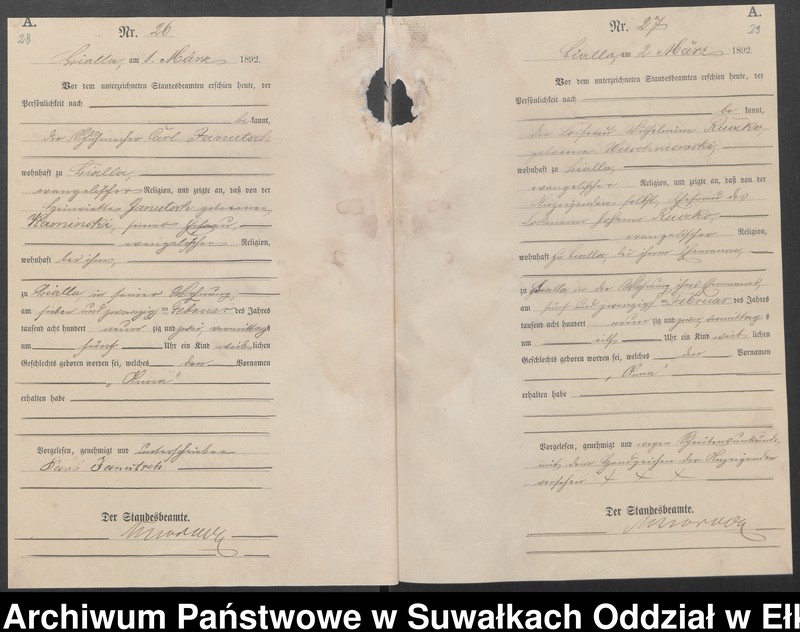 A.
28
Nr. 26
Bialla, am 1. März 1892.
Vor dem unterzeichneten Standesbeamten erschien heute, der
Persönlichkeit nach
bekannt,
der Carl
wohnhaft zu Bialla,
evangelischer Religion, und zeigte an, daß von der
geborenen
Kaminski, seiner Ehefrau,
evangelischer Religion,
wohnhaft bei ihm,
zu Bialla in seiner Wohnung,
am sieben und zwanzigsten Februar des Jahres
tausend acht hundert neunzig und zwei, vormittags
um fünf Uhr ein Kind weiblichen
Geschlechts geboren worden sei, welches den Vornamen
„Anna“
erhalten habe
Vorgelesen, genehmigt und unterschrieben
Janutsch
Der Standesbeamte.
A.
29
Nr. 27
Bialla, am 2. März 1892.
Vor dem unterzeichneten Standesbeamten erschien heute, der
Persönlichkeit nach
bekannt,
die Wilhelmine Ruczko,
geborene
wohnhaft zu Bialla,
evangelischer Religion, und zeigte an, daß von der
Anzeigenden selbst, Ehefrau des
Johann Ruczko,
evangelischer Religion,
wohnhaft zu Bialla, bei ihrem Ehemanne,
zu Bialla in der Wohnung ihres Ehemannes,
am fünf und zwanzigsten Februar des Jahres
tausend acht hundert neunzig und zwei, vormittags
um Uhr ein Kind weiblichen
Geschlechts geboren worden sei, welches den Vornamen
„Anna“
erhalten habe
Vorgelesen, genehmigt und wegen Schreibensunkunde
mit dem Handzeichen der Anzeigenden
versehen + + +
Der Standesbeamte.
Archiwum Państwowe w Suwałkach Oddział w Ełk